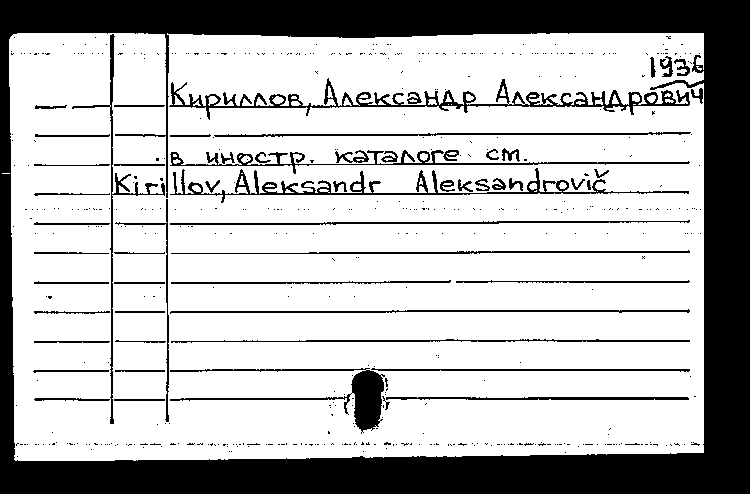 1936
Кириллов, Александр Александрович
в иностр. каталоге см.
Kirillov, Aleksandr Aleksandrovič